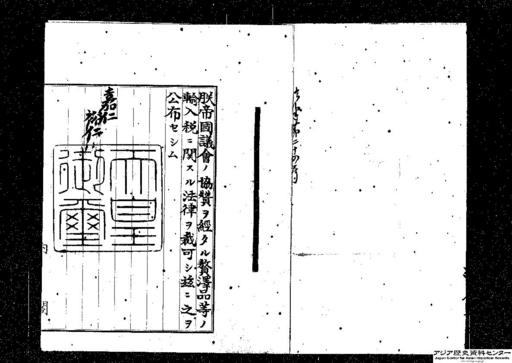 朕帝國議會ノ協贊ヲ經タル贅澤品等ノ
輸入税ニ關スル法律ヲ裁可シ茲ニ之ヲ
公布セシム
嘉仁
裕仁
天皇
御璽
内閣
アジア歴史資料センター
Japan Center for Asian Historical Records